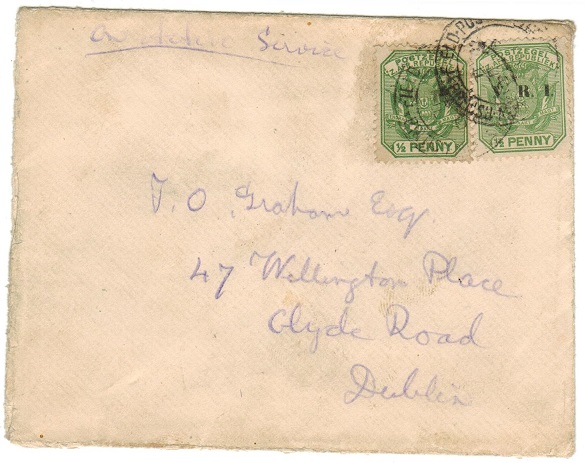 On Active Service
POSTZEGEL
Z. AFR. REPUBLIEK
½ PENNY
POSTZEGEL
Z. AFR. REPUBLIEK
R I
½ PENNY
J. O. Graham Esq.
47 Wellington Place
Clyde Road
Dublin